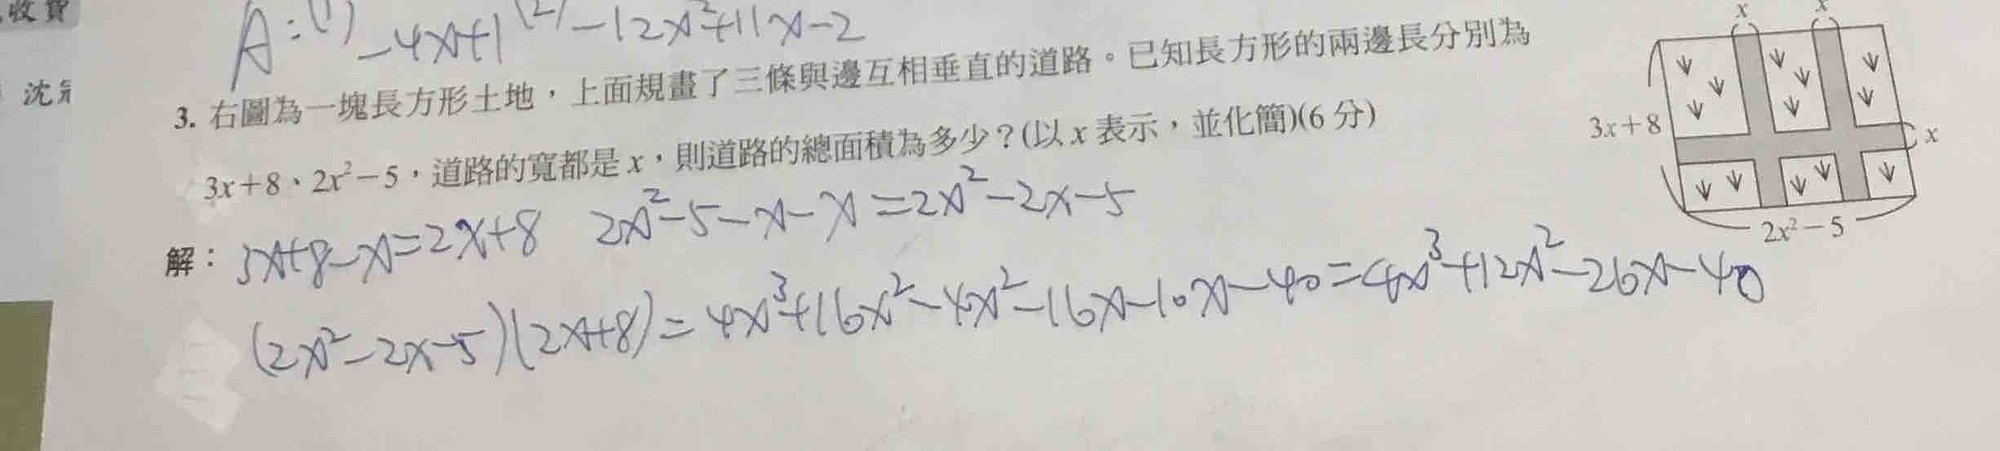 收費
沈
A:(1) -4x+1 (2) -12x²+11x-2
3. 右圖為一塊長方形土地，上面規畫了三條與邊互相垂直的道路。已知長方形的兩邊長分別為
3x+8、2x²-5，道路的寬都是x，則道路的總面積為多少？(以x表示，並化簡)(6分)
x x
3x+8
x
2x²-5
解：3x+8-x=2x+8 2x²-5-x-x=2x²-2x-5
(2x²-2x-5)(2x+8)=4x³+16x²-4x²-16x-10x-40=4x³+12x²-26x-40